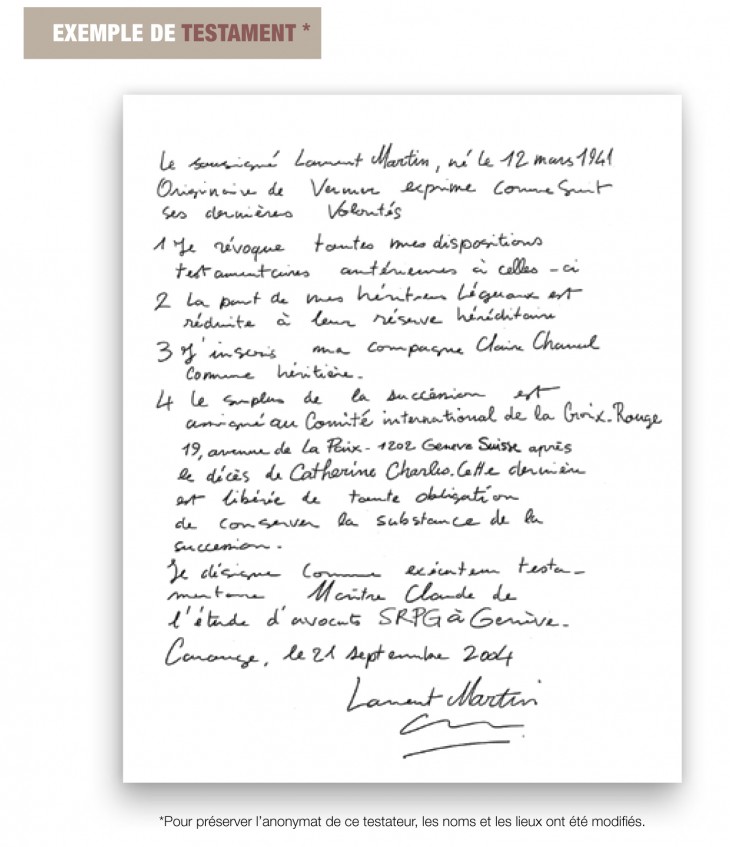 EXEMPLE DE TESTAMENT *
Le soussigné Laurent Martin, né le 12 mars 1941
Originaire de exprime comme suit
ses dernières volontés
1 Je révoque toutes mes dispositions
testamentaires antérieures à celles-ci
2 La part de mes héritiers légaux est
réduite à leur réserve héréditaire
3 J'inscris ma compagne Claire
comme héritière.
4 Le surplus de la succession est
assigné au Comité international de la Croix-Rouge
19, avenue de La Paix - 1202 Geneve Suisse après
le décès de Catherine Charles. Cette dernière
est libérée de toute obligation
de conserver la substance de la
succession.
Je désigne comme exécuteur testa-
mentaire Maître Claude de
l'étude d'avocats SRPG à Genève.
Carouge, le 21 septembre 2004
Laurent Martin
*Pour préserver l'anonymat de ce testateur, les noms et les lieux ont été modifiés.